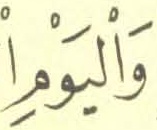 وَاْليَوْمِ اْ